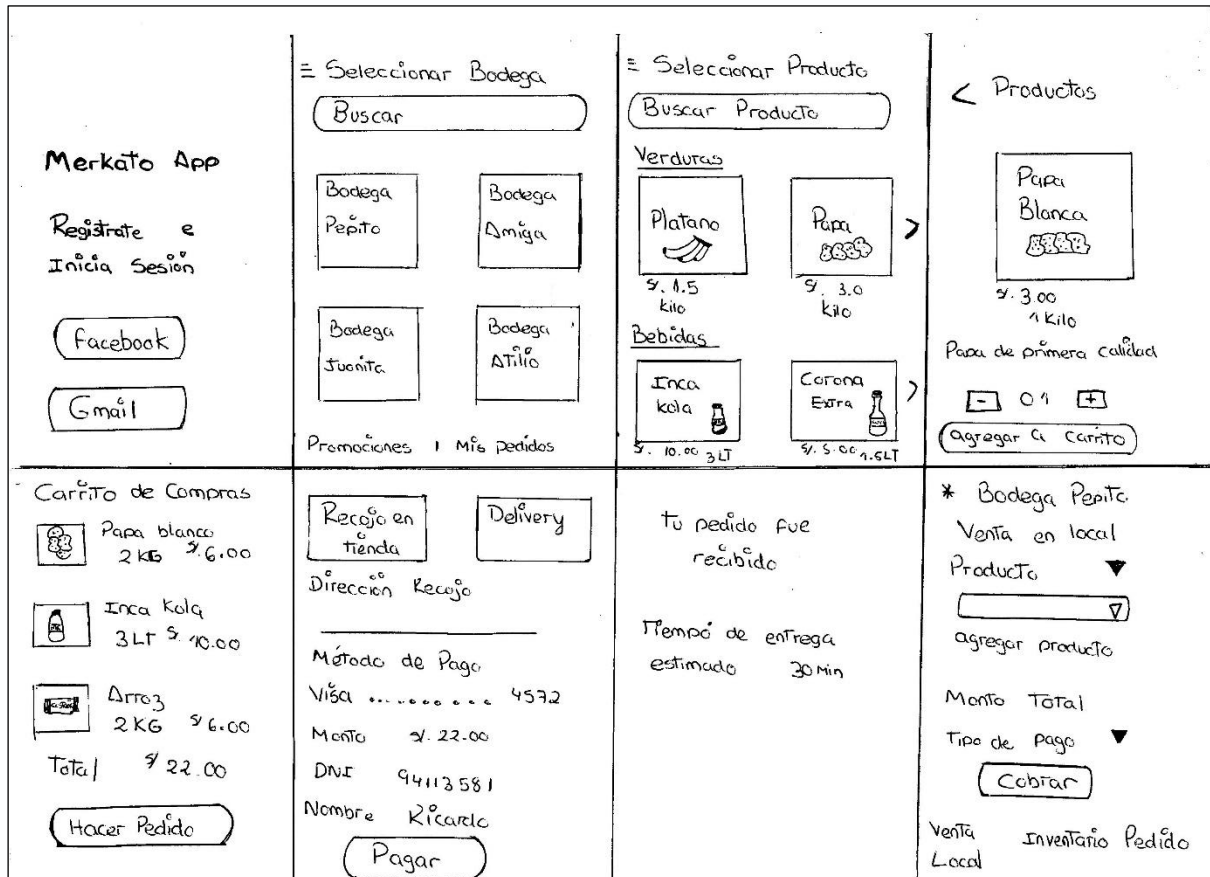 Merkato App
Registrate e
Inicia Sesión
Facebook
Gmail
Seleccionar Bodega
Buscar
Bodega
Pepito
Bodega
Amiga
Bodega
Juanita
Bodega
Atilio
Promociones | Mis pedidos
Seleccionar Producto
Buscar Producto
Verduras
Platano
Papa
S/. 1.5
kilo
S/. 3.0
kilo
Bebidas
Inca
Kola
Corona
Extra
S/. 10.00 3LT
S/. 5.00 1.5LT
< Productos
Papa
Blanca
S/. 3.00
1 Kilo
Papa de primera calidad
- 01 +
agregar a carrito
Carrito de Compras
Papa blanca
2 KG S/. 6.00
Inca Kola
3 LT S/. 10.00
Arroz
2 KG S/ 6.00
Total S/ 22.00
Hacer Pedido
Recojo en
tienda
Delivery
Dirección Recojo
Método de Pago
Visa .......... 4572
Monto S/. 22.00
DNI 94113581
Nombre Ricardo
Pagar
Tu pedido fue
recibido
Tiempo de entrega
estimado 30 Min
* Bodega Pepito
Venta en local
Producto
agregar producto
Monto Total
Tipo de pago
Cobrar
Venta
Local
Inventario Pedido